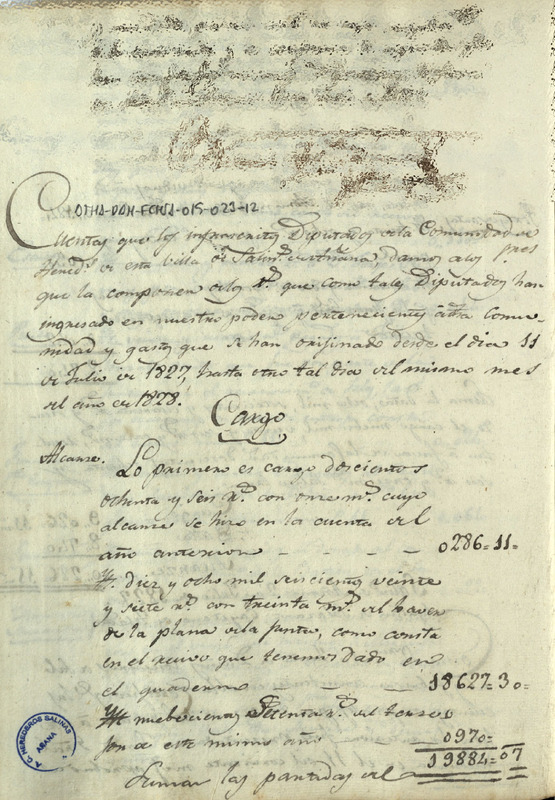 OTHA-DON-FCHSA-015-023-12
Cuentas que los infraescritos Diputados de la Comunidad de
Hered.s de esta villa de Salin.s de Añana, damos a los S.res
que la componen de los r.s que como tales Diputados han
ingresado en nuestro poder pertenecientes a dha Comu-
nidad y gastos que se han originado desde el dia 11
de Julio de 1827, hasta otro tal dia del mismo mes
del año de 1828.
Cargo
Alcanze. Lo primero es cargo doscientos
ochenta y seis r.s con once m.s cuyo
alcanze se hizo en la cuenta del
año anterior - - - - 0286=11=
Yt. diez y ocho mil seiscientos veinte
y siete r.s con treinta m.s del haver
de la plana de la Junta, como consta
en el recivo que tenemos dado en
el quaderno - - - 18627=30=
Yt. nuebecientos setenta r.s del
de este mismo año - - 0970=
19884=07
Suman las partidas del
C. HEREDEROS SALINAS
AÑANA